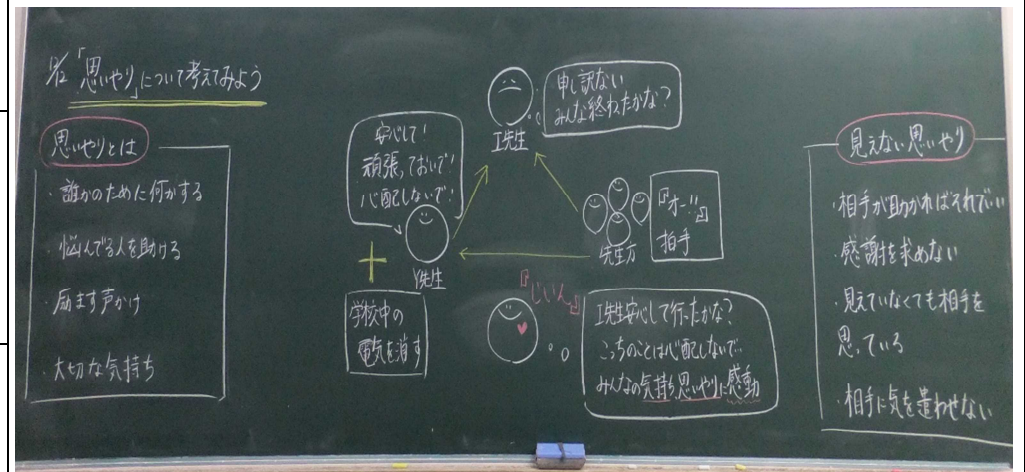 12/2 「思いやり」について考えてみよう
思いやりとは
・誰かのために何かする
・悩んでる人を助ける
・励ます声かけ
・大切な気持ち
安心して!
頑張っておいで!
心配しないで!
Y先生
学校中の
電気を消す
I先生
申し訳ない
みんな終わったかな?
先生方
『オー!!』
拍手
『じいん』
I先生安心して行ったかな?
こっちのことは心配しないで…
みんなの気持ち思いやりに感動
見えない思いやり
・相手が助かればそれでいい
・感謝を求めない
・見えていなくても相手を
思っている
・相手に気を遣わせない